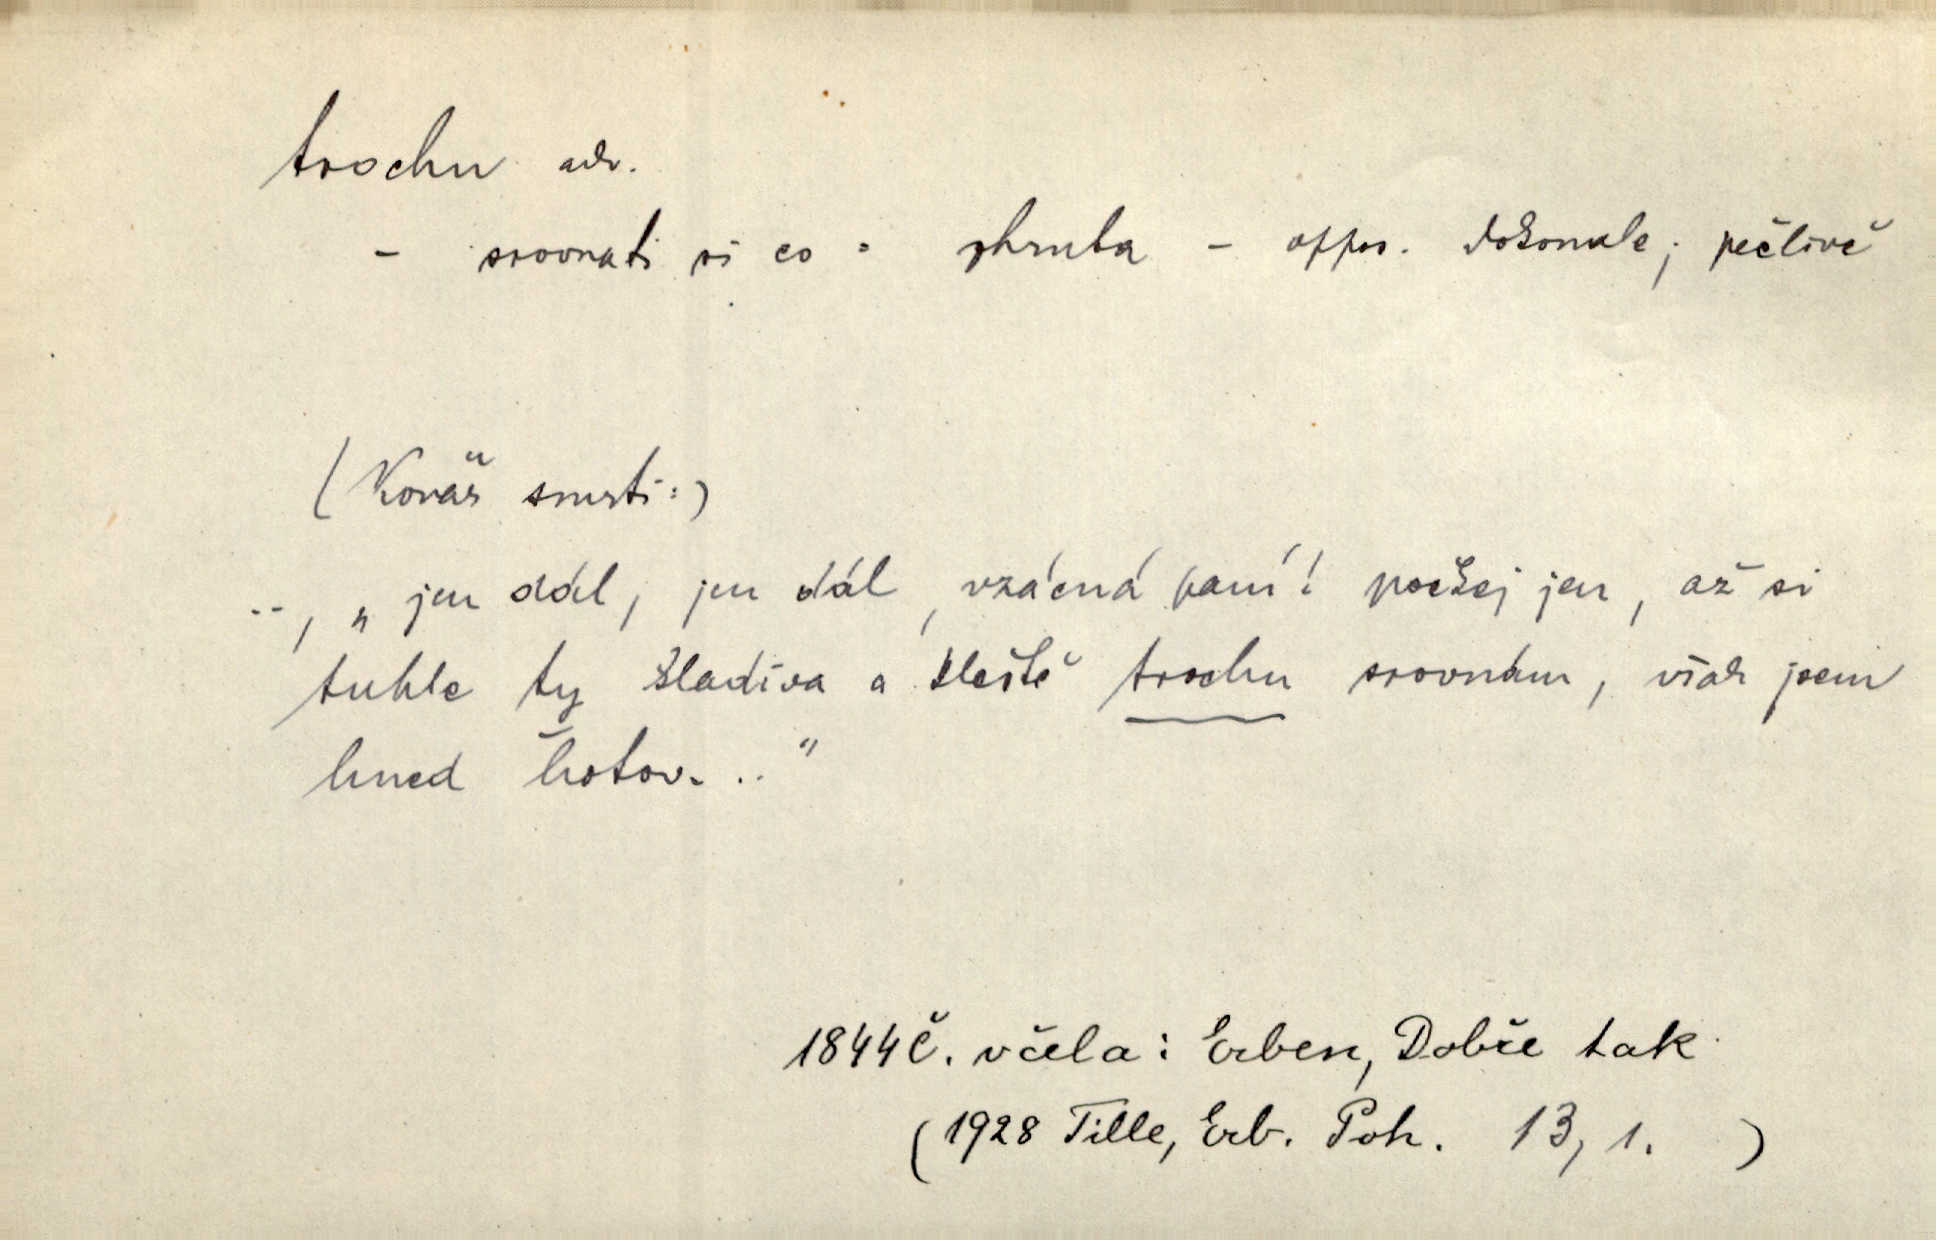 trochu adv.
- srovnati si co = zhruba - oppos. dokonale, pečlivě
(Kovář smrti:)
.., „jen dál, jen dál, vzácná paní! počkej jen, až si
tuhle ty kladiva a kleště trochu srovnám, však jsem
hned hotov. .."
1844 Č. včela: Erben, Dobře tak
(1928 Tille, Erb. Poh. 13, 1. )